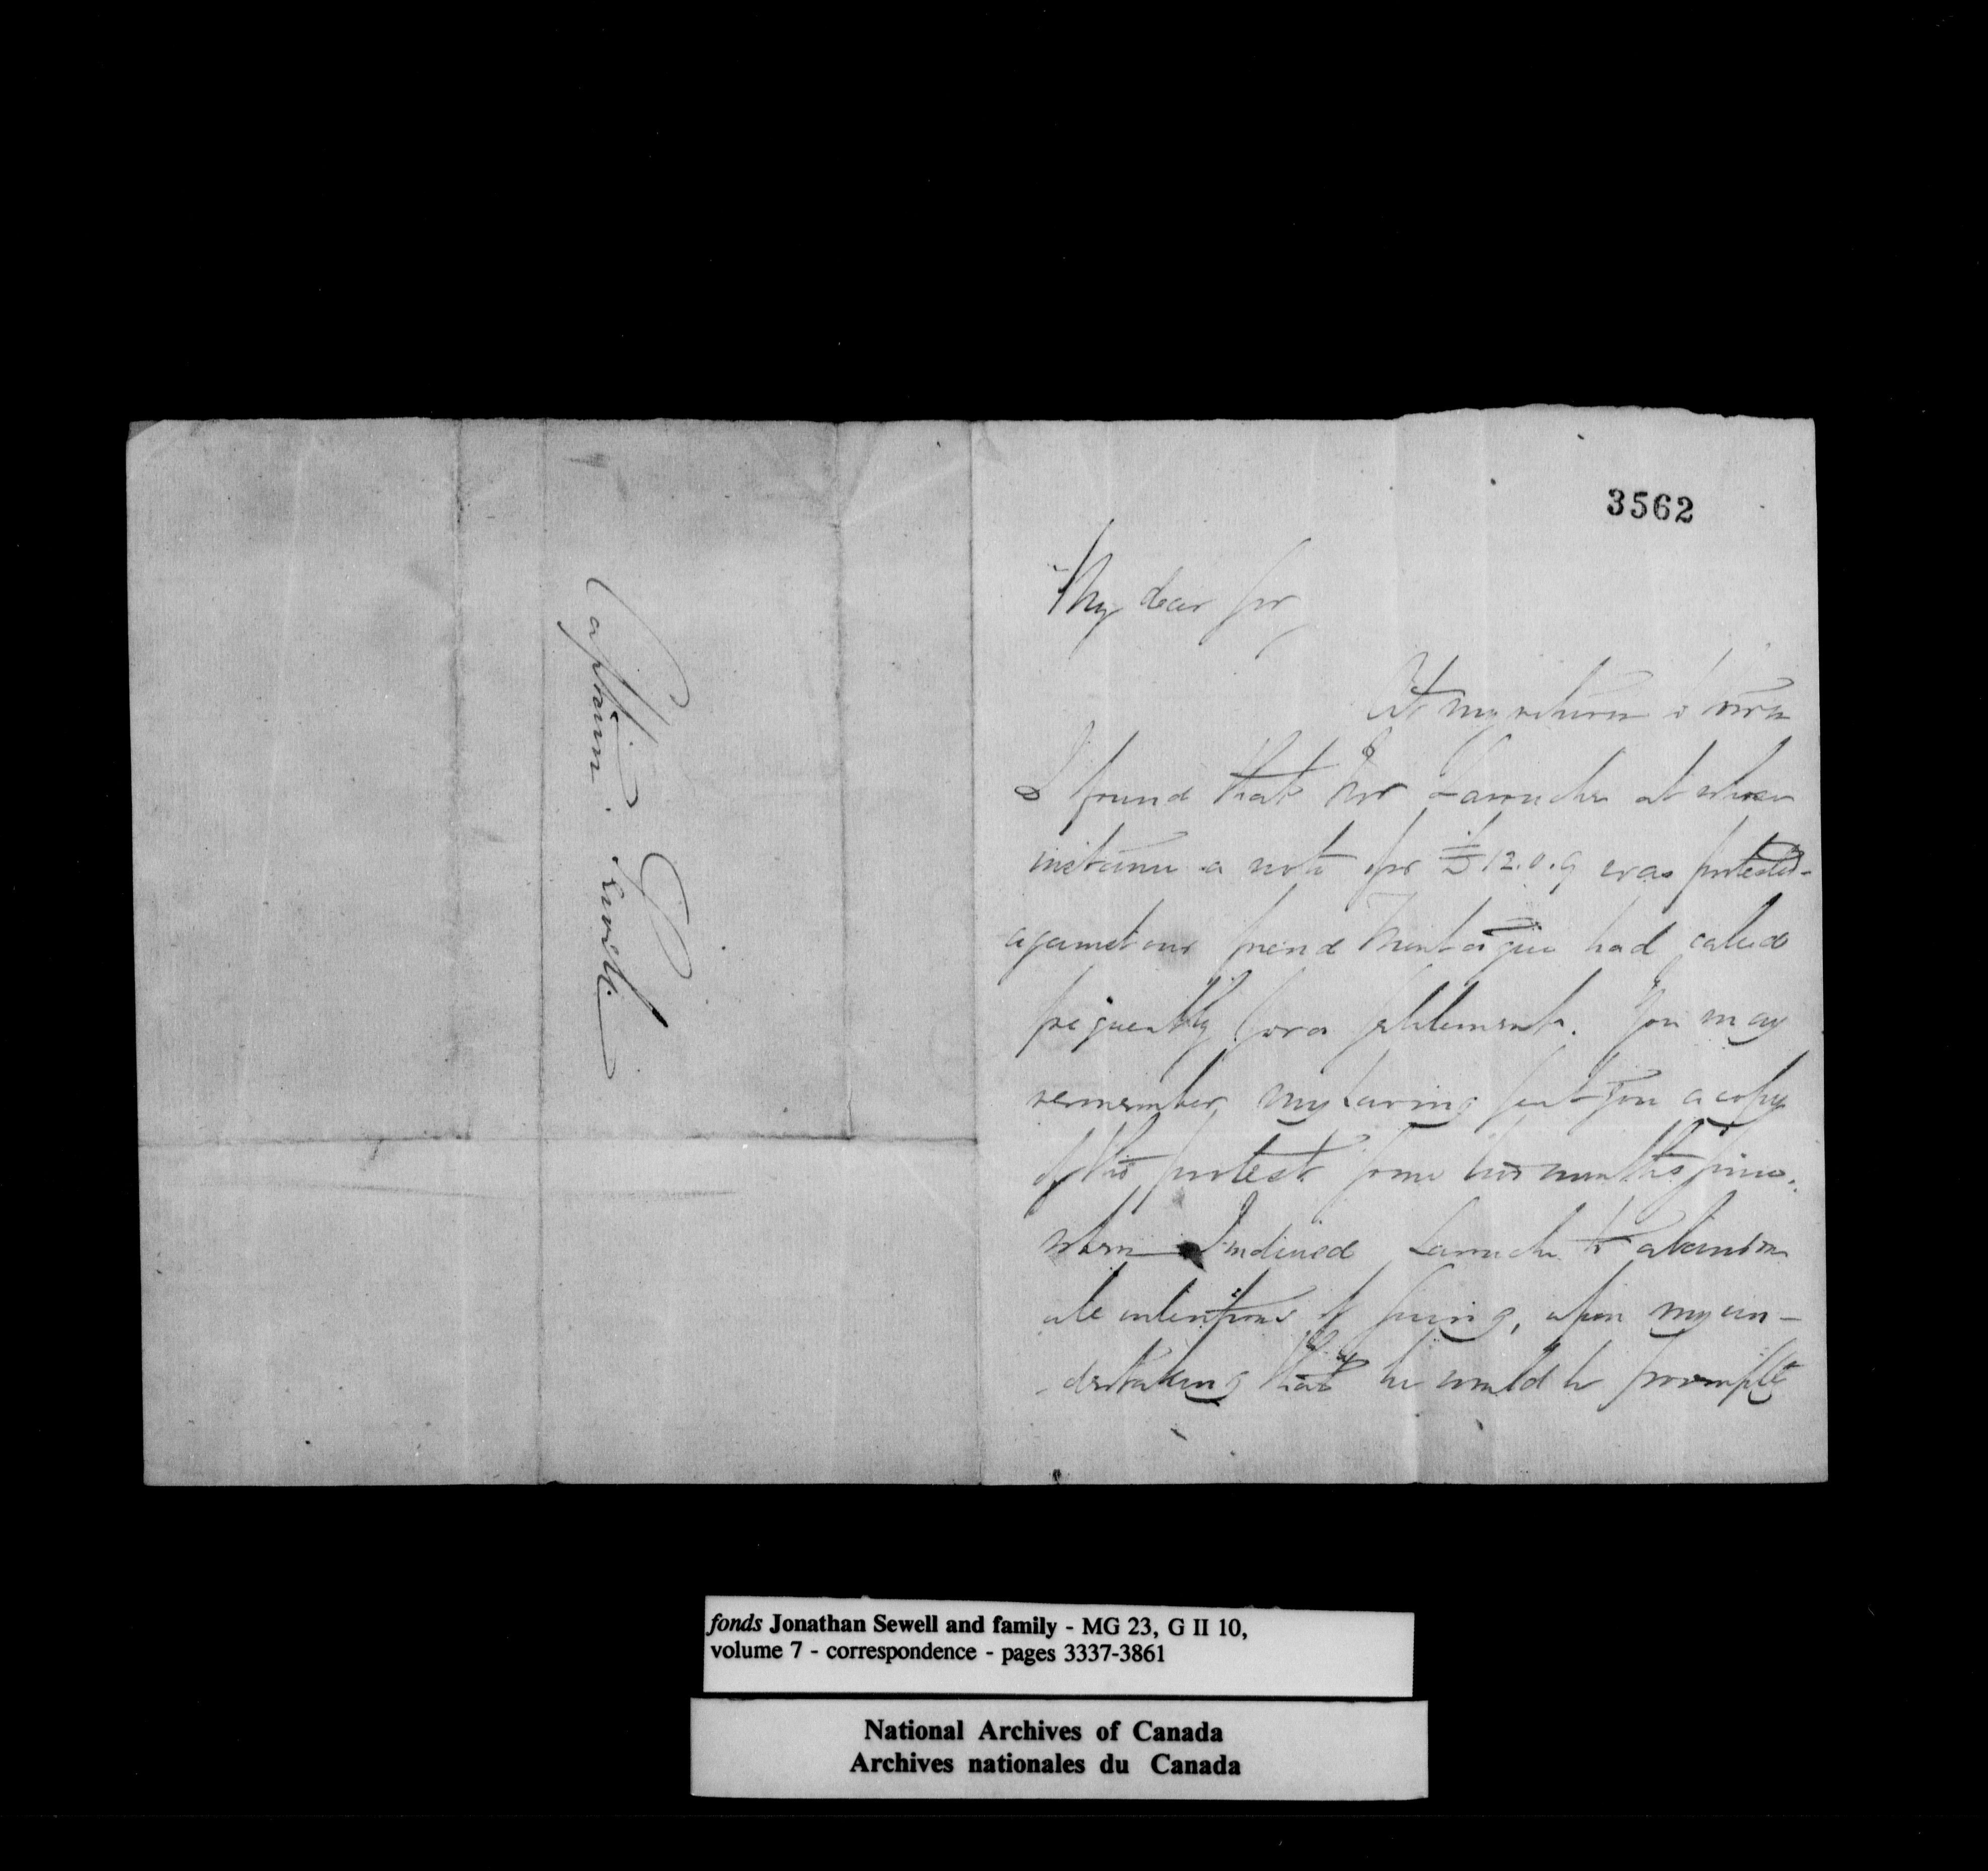 Captain Sewell.
3562
My dear Sir,
At my return to town
I found that Mr Larouche at whose
instance a note for £12.0.9 was protested
against our friend Montague had called
frequently for a settlement. You may
remember my having sent you a copy
of this protest some two months since.
when I induced Larouche to abandon
all intentions of suing, upon my un-
-dertaking that he would be promptly
fonds Jonathan Sewell and family - MG 23, G II 10,
volume 7 - correspondence - pages 3337-3861
National Archives of Canada
Archives nationales du Canada